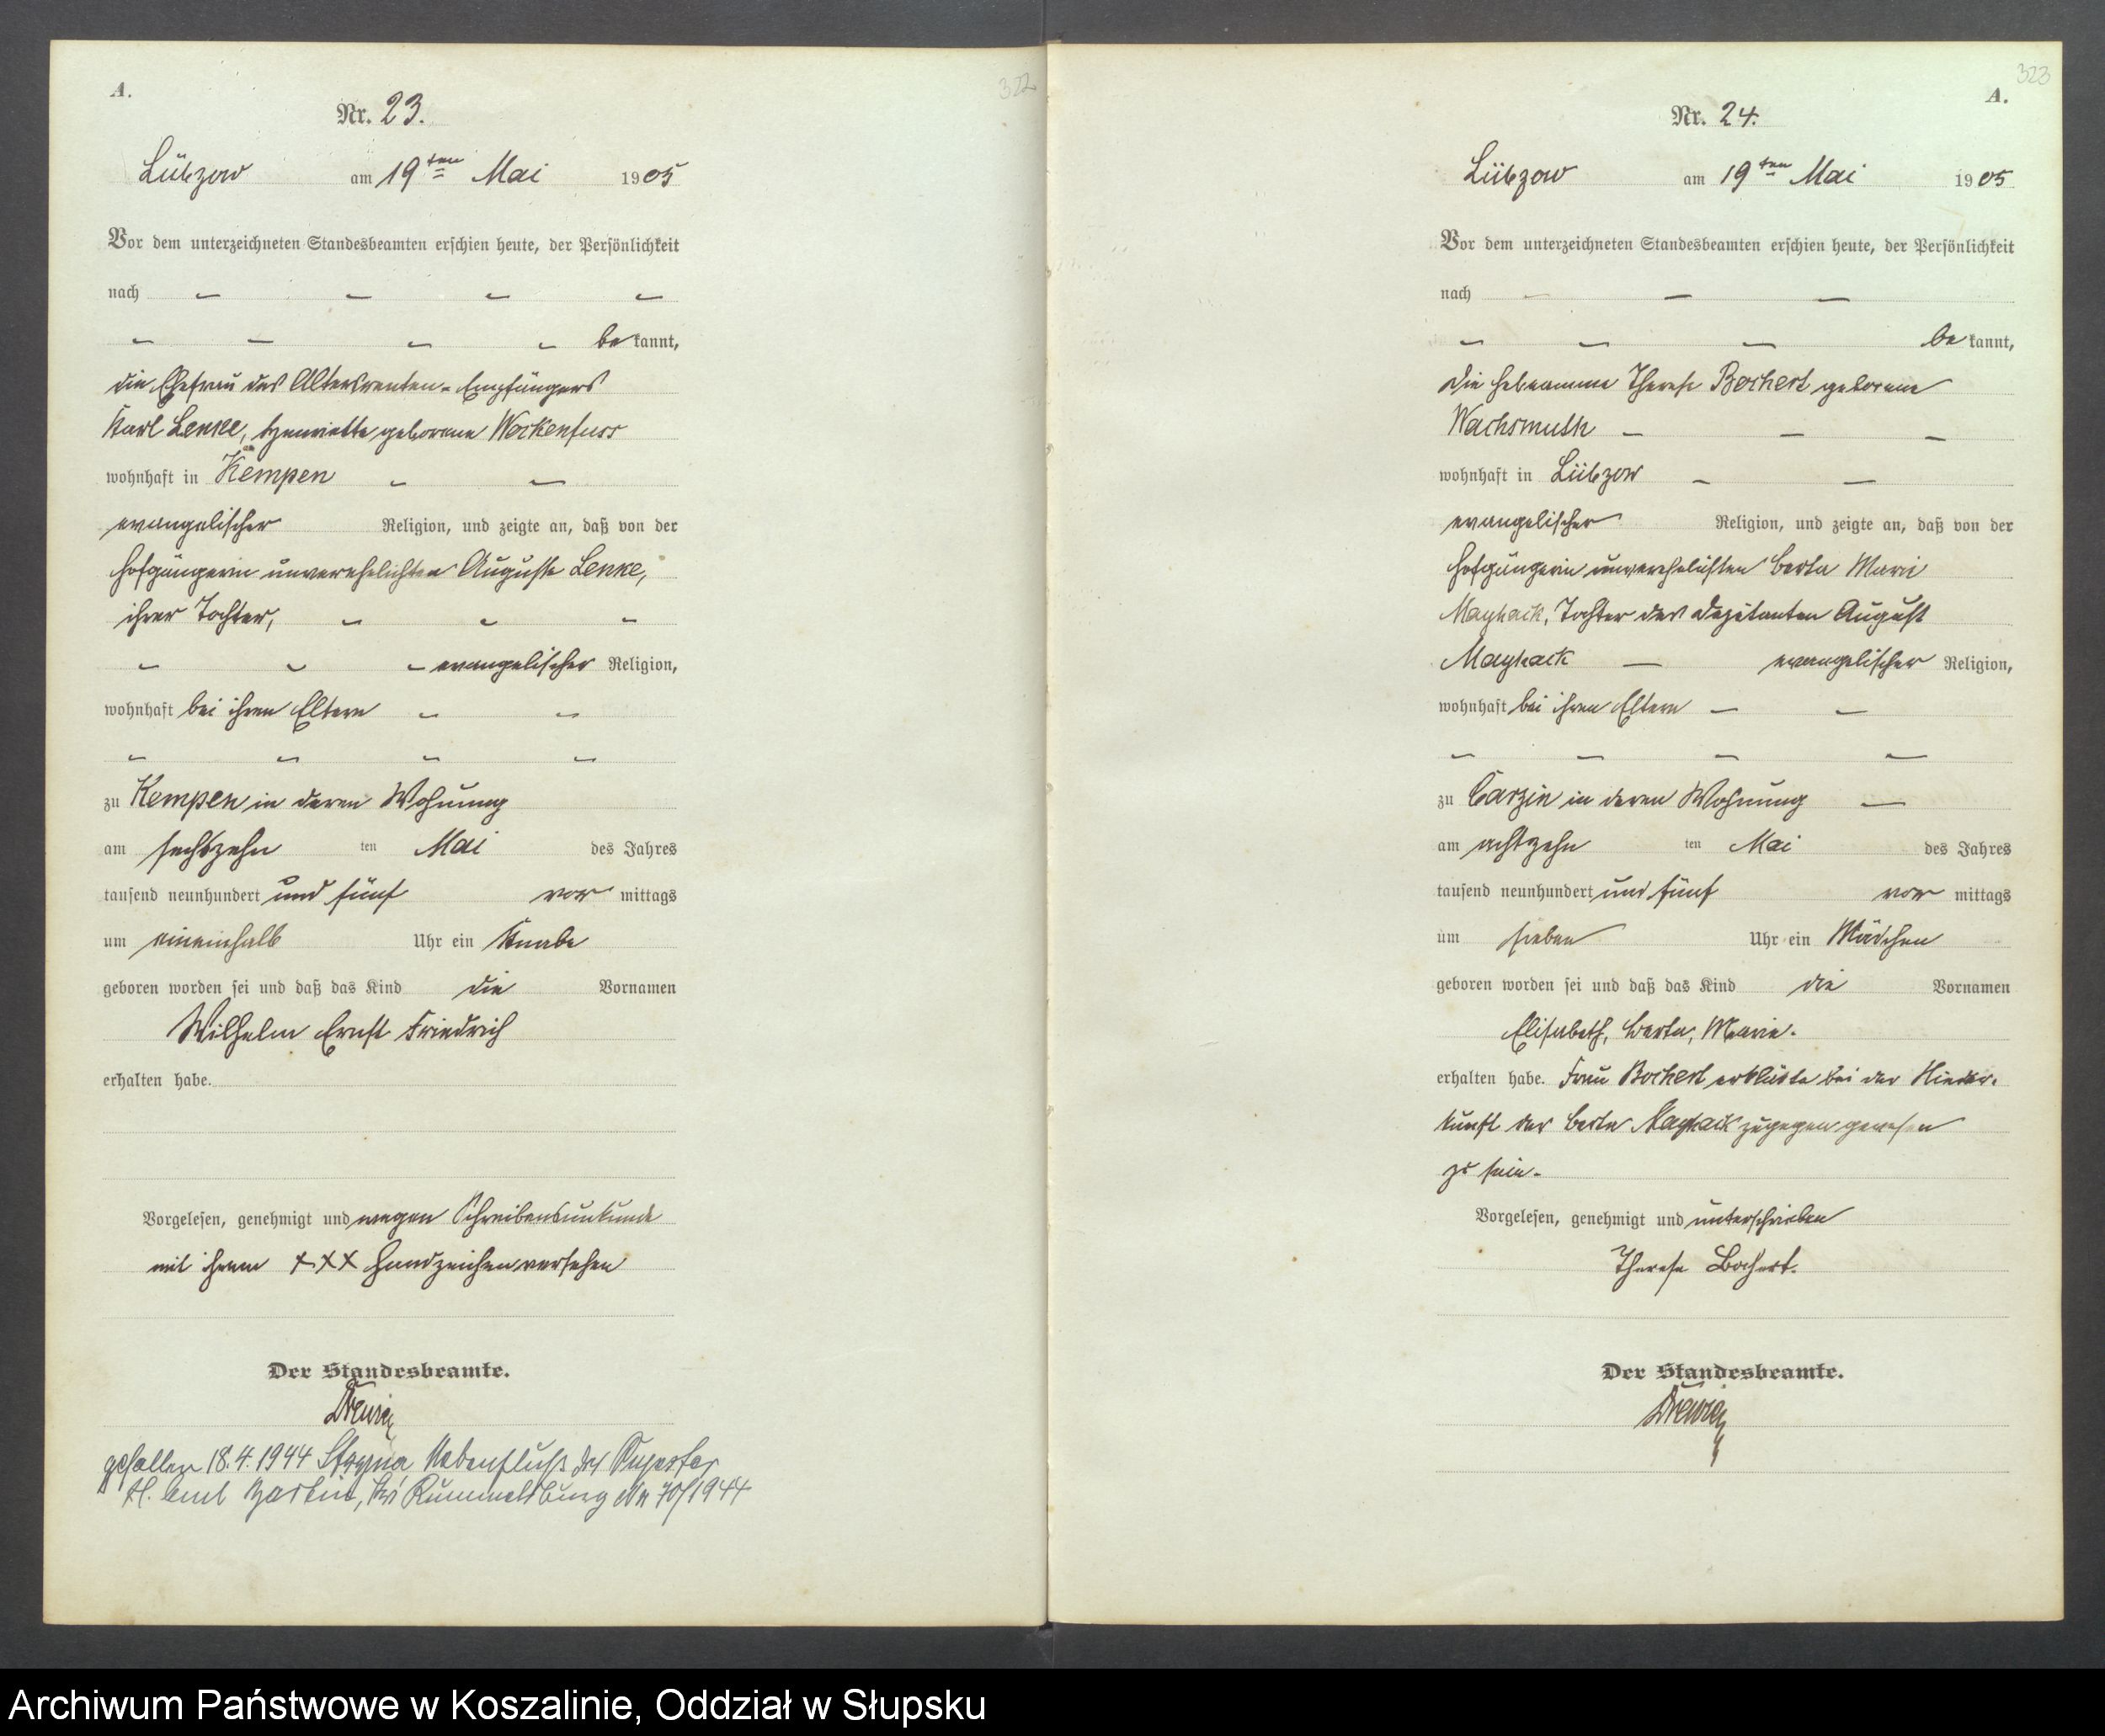 322
A.
Nr. 23.
Lübzow am 19ten Mai 1905
Vor dem unterzeichneten Standesbeamten erschien heute, der Persönlichkeit
nach
bekannt,
die Ehefrau des Altersrenten-Empfängers
Karl Lenke, Henriette geborene Wockenfuss
wohnhaft in Kempen
evangelischer Religion, und zeigte an, daß von der
Hofgängerin unverehelichten Auguste Lenke,
ihrer Tochter,
evangelischer Religion,
wohnhaft bei ihren Eltern
zu Kempen in deren Wohnung
am sechszehn ten Mai des Jahres
tausend neunhundert und fünf vor mittags
um eineinhalb Uhr ein Knabe
geboren worden sei und daß das Kind die Vornamen
Wilhelm Ernst Friedrich
erhalten habe.
Vorgelesen, genehmigt und wegen Schreibensunkunde
mit ihrem +++ Handzeichen versehen
Der Standesbeamte.
gefallen 18.4.1944 Nebenfluß des
Rummelsburg Nr 70/1944
323
A.
Nr. 24.
Lübzow am 19ten Mai 1905
Vor dem unterzeichneten Standesbeamten erschien heute, der Persönlichkeit
nach
bekannt,
die Hebeamme Therese Bochert geborene
Wachsmuth
wohnhaft in Lübzow
evangelischer Religion, und zeigte an, daß von der
Hofgängerin unverehelichten Berta Marie
Mayhack, Tochter des Deputanten August
Mayhack evangelischer Religion,
wohnhaft bei ihren Eltern
zu Carzin in deren Wohnung
am achtzehn ten Mai des Jahres
tausend neunhundert und fünf vor mittags
um sieben Uhr ein Mädchen
geboren worden sei und daß das Kind die Vornamen
Elisabeth, Berta, Marie.
erhalten habe. Frau Bochert erklärte bei der Nieder-
kunft der Berta Mayhack zugegen gewesen
zu sein.
Vorgelesen, genehmigt und unterschrieben
Therese Bochert.
Der Standesbeamte.
Archiwum Państwowe w Koszalinie, Oddział w Słupsku